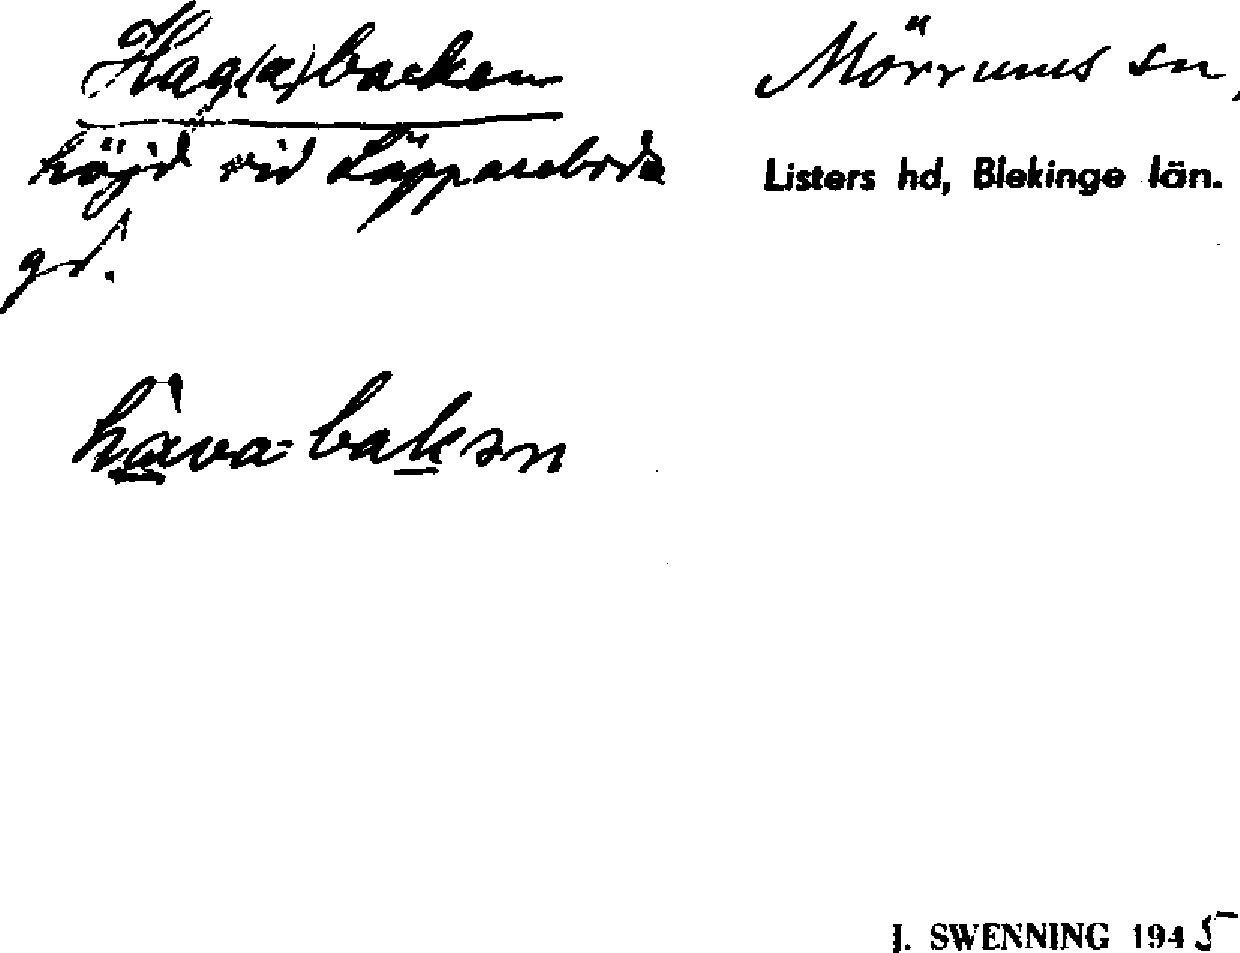 Hag(a)backen
Mörrums sn,
höjd vid Läppareboda
Listers hd, Blekinge län.
gd.
hava-bakən
J. SWENNING 1945